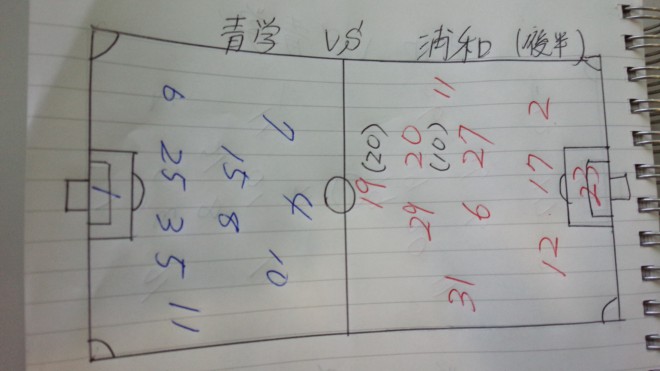 青学 VS 浦和 (後半)
1
6
25
3
5
11
15
8
7
4
10
(20)
19
20
(10)
29
11
27
6
31
2
17
12
23